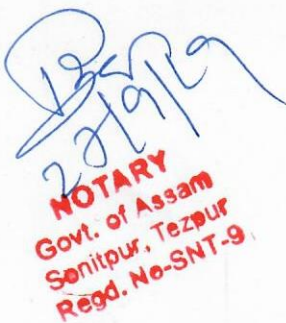 27/9/19
NOTARY
Govt. of Assam
Sonitpur, Tezpur
Regd. No-SNT-9